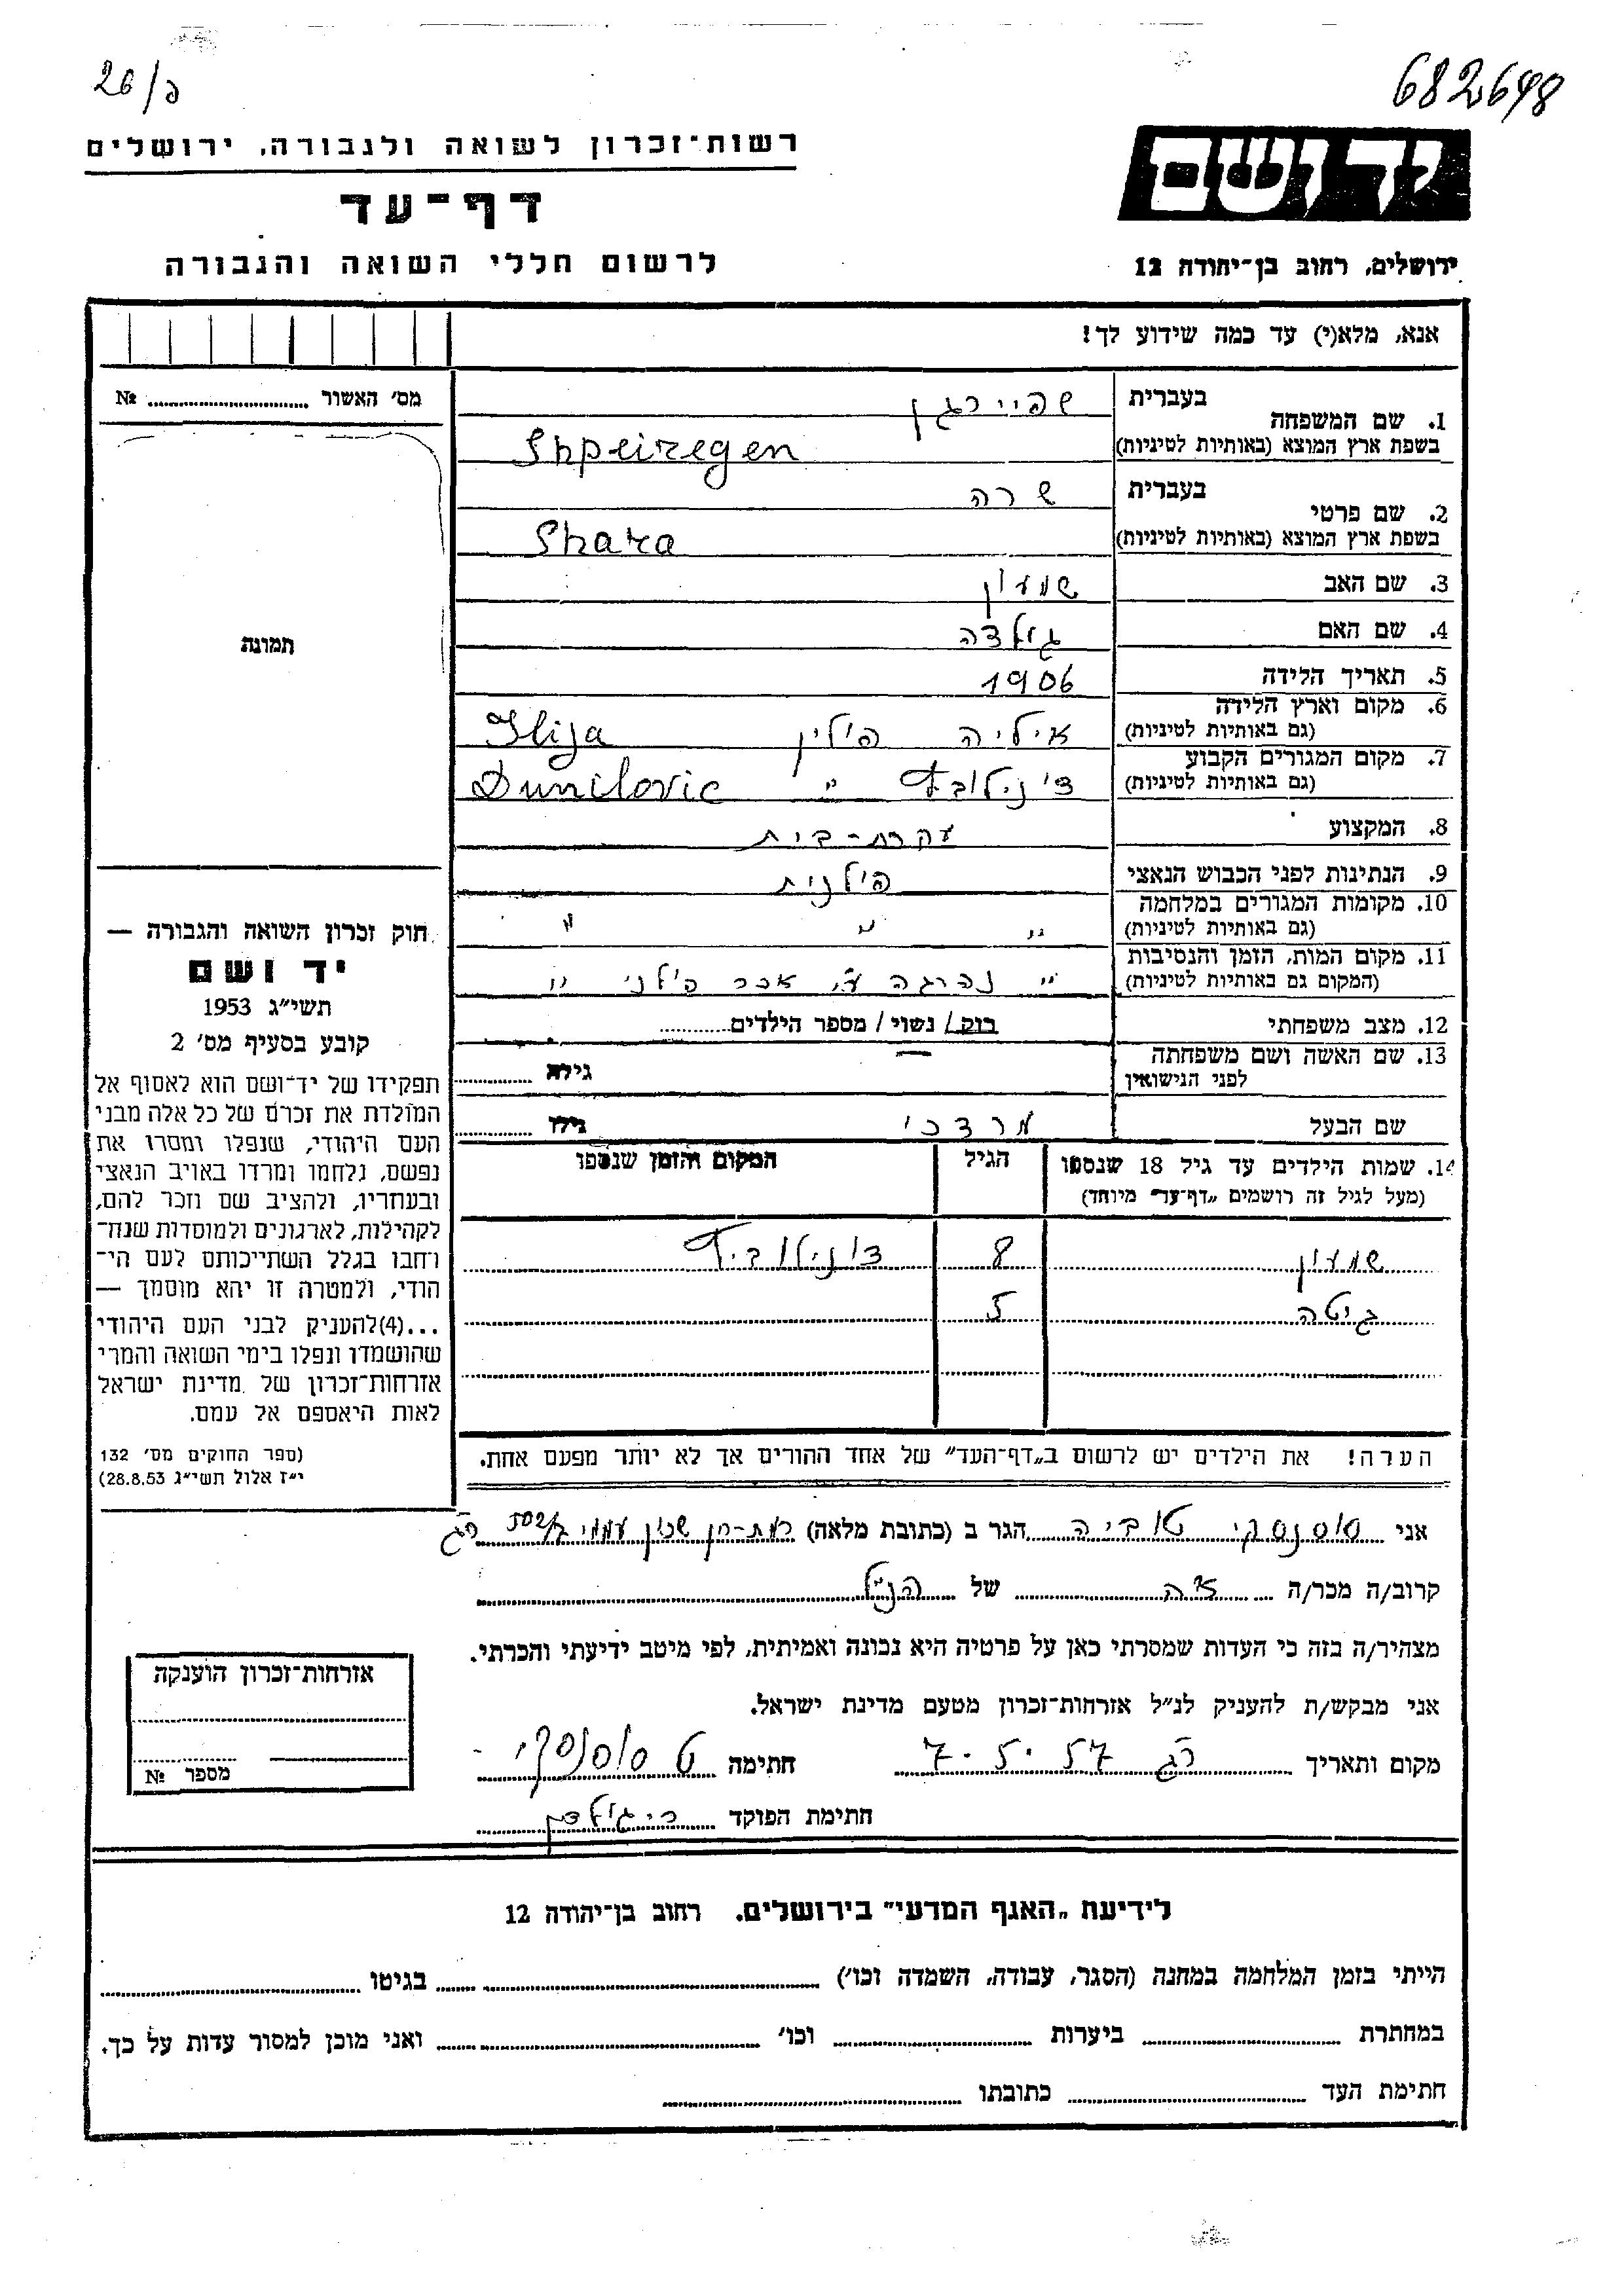 20/ג
682648
רשות־זכרון לשואה ולגבורה, ירושלים
דף־עד
לרשום חללי השואה והגבורה
יד ושם
ירושלים, רחוב בן־יהודה 12
אנא, מלא(י) עד כמה שידוע לך!
מס׳ האשור № ........
1. שם המשפחה
בעברית שפיירגן
בשפת ארץ המוצא (באותיות לטיניות) Shpeizegen
2. שם פרטי
בעברית שרה
בשפת ארץ המוצא (באותיות לטיניות) Shara
3. שם האב שמעון
4. שם האם גולדה
5. תאריך הלידה 1906
6. מקום וארץ הלידה
(גם באותיות לטיניות) איליה פולין Ilija
7. מקום המגורים הקבוע
(גם באותיות לטיניות) דונילוביץ " Dunilovic
8. המקצוע עקרת-בית
9. הנתינות לפני הכבוש הנאצי פולנית
10. מקומות המגורים במלחמה
(גם באותיות לטיניות) " " "
11. מקום המות, הזמן והנסיבות
(המקום גם באותיות לטיניות) " נהרגה ע"י אכר פולני "
12. מצב משפחתי רוק/ נשוי/ מספר הילדים........
13. שם האשה ושם משפחתה
לפני הנישואין — גילה ........
שם הבעל מרדכי גילו ........
14. שמות הילדים עד גיל 18 שנספו
(מעל לגיל זה רושמים „דף־עד״ מיוחד)
הגיל
המקום והזמן שנספו
שמעון 8 דונילוביץ
גיטה 5
הערה! את הילדים יש לרשום ב„דף־העד״ של אחד ההורים אך לא יותר מפעם אחת.
תמונה
חוק זכרון השואה והגבורה —
יד ושם
תשי״ג 1953
קובע בסעיף מס׳ 2
תפקידו של יד־ושם הוא לאסוף אל
המולדת את זכרם של כל אלה מבני
העם היהודי, שנפלו ומסרו את
נפשם, נלחמו ומרדו באויב הנאצי
ובעוזריו, ולהציב שם וזכר להם,
לקהילות, לארגונים ולמוסדות שנח־
רחבו בגלל השתייכותם לעם הי־
הודי, ולמטרה זו יהא מוסמך —
...(4)להעניק לבני העם היהודי
שהושמדו ונפלו בימי השואה והמרי
אזרחות־זכרון של מדינת ישראל
לאות היאספם אל עמם.
(ספר החוקים מס׳ 132
י״ז אלול תשי״ג 28.8.53)
אני סוסנסקי טוביה הגר ב (כתובת מלאה) רמת-רן שכון עממי רג
קרוב/ה מכר/ה אח של הנ"ל
מצהיר/ה בזה כי העדות שמסרתי כאן על פרטיה היא נכונה ואמיתית, לפי מיטב ידיעתי והכרתי.
אני מבקש/ת להעניק לנ״ל אזרחות־זכרון מטעם מדינת ישראל.
מקום ותאריך רג 7.5.57 חתימה ט סוסנסקי
חתימת הפוקד
אזרחות־זכרון הוענקה
מספר №
לידיעת „האגף המדעי״ בירושלים. רחוב בן־יהודה 12
הייתי בזמן המלחמה במחנה (הסגר, עבודה, השמדה וכו׳) ........ בגיטו ........
במחתרת ........ ביערות ........ וכו׳ ........ ואני מוכן למסור עדות על כך.
חתימת העד ........ כתובתו ........